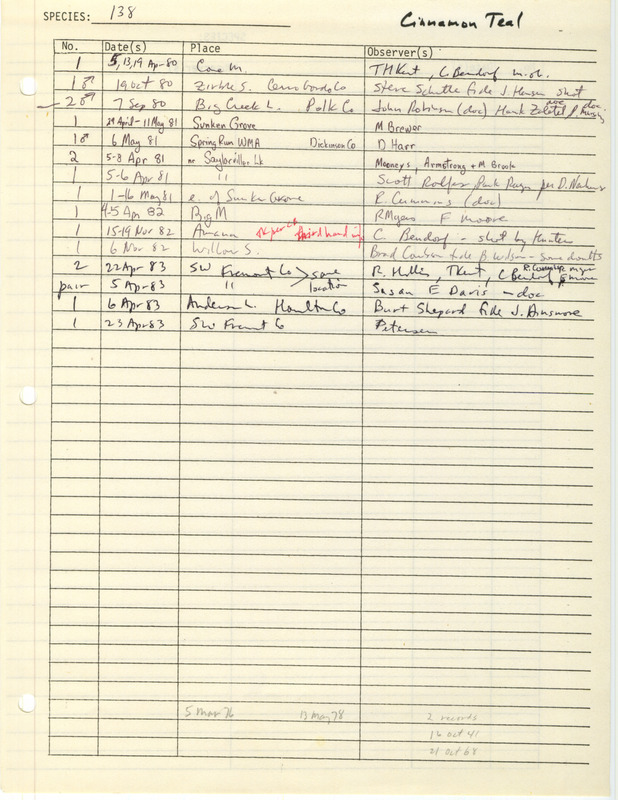 SPECIES: 138 Cinnamon Teal
No. Date(s) Place Observer(s)
1 5,13,19 Apr-80 Cone M. THKent, C. Bendorf m.ob.
1♂ 19 Oct 80 Zirbel S. Cerro Gordo Co Steve Schutte fide J. Hansen shot
2♂ 7 Sep 80 Big Creek L. Polk Co John Robinson (doc) Hank Zaletel doc
1 29 April - 11 May 81 Sunken Grove M Brewer
1♂ 6 May 81 Spring Run WMA Dickinson Co D Harr
2 5-8 Apr 81 nr Saylorville Lk Mooneys, Armstrong + M Brooks
1 5-6 Apr 81 " Scott Park Ranger per D.
1 1-16 May 81 e of Sunken Grove R. Cummins (doc)
1 4-5 Apr 82 Big M RMyers F Moore
1 15-19 Nov 82 Amana third hand C. Bendorf - shot by hunter
1 6 Nov 82 Willow S. Brad fide B Wilson - some doubts
2 22 Apr 83 SW Fremont Co > same location R. TKent, C Bendorf
pair 5 Apr 83 " Susan E Davis - doc
1 6 Apr 83 Anderson L. Hamilton Co Burt Shepard fide J. Dinsmore
1 23 Apr 83 SW Fremont Co Petersen
5 Mar 76 13 May 78 2 records
16 Oct 41
21 Oct 68